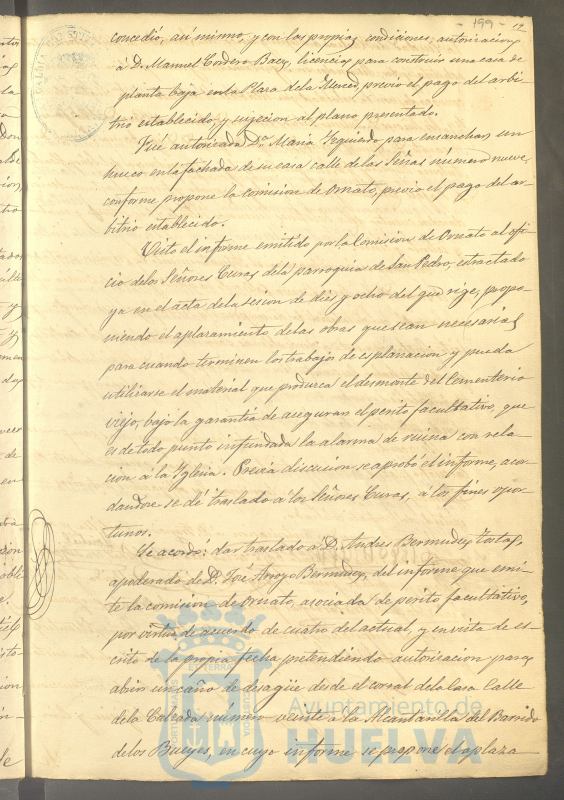 - 199 - 12
concedió, asi mismo, y con las propias condiciones, autorizacion
á D. Manuel Cordero Baez, licencia para construir una casa de
planta baja en la Plaza de la Merced, previo el pago del arbi-
trio establecido y sujecion al plano presentado.
Fué autorizada Dª Maria Izquierdo para ensanchar un
hueco en la fachada de su casa calle de las Señas número nueve,
conforme propone la comision de Ornato, previo el pago del ar-
bitrio establecido.
Visto el informe emitido por la Comision de Ornato al ofi-
cio de los Señores Curas de la parroquia de San Pedro, estractado
ya en el acta de la sesion de dies y ocho del que rige, propo-
niendo el aplazamiento de las obras que sean necesarias
para cuando terminen los trabajos de esplanacion y pueda
utilizarse el material que produzca el desmonte del Cementerio
viejo, bajo la garantia de asegurar el perito facultativo, que
es de todo punto infundada la alarma de ruina con rela-
cion á la Yglesia. Previa discusion se aprobó el informe, acor-
dandose se dé traslado á los Señores Curas, á los fines opor-
tunos.
Se acordó: dar traslado á D. Andres Bermudez
apoderado de D. José Arroyo Bermudez, del informe que emi-
te la comision de Ornato, asociada de perito facultativo,
por virtud de acuerdo de cuatro del actual, y en vista de es-
crito de la propia fecha pretendiendo autorizacion para
abrir un caño de desagüe desde el corral de la Casa Calle
de la Calzada número veinte á la Alcantarilla del Barrido
de los Bueyes, en cuyo informe se propone el aplaza
Ayuntamiento de
HUELVA